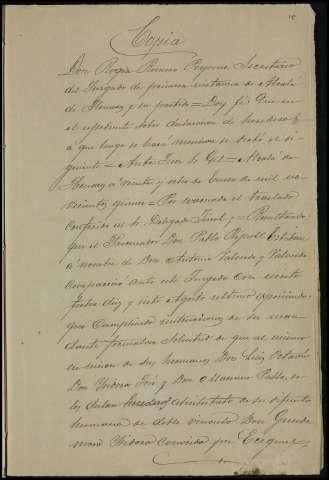 Copia
Don Roque Romero Reyorne, Secretario
del Juzgado de primera instancia de Alcalá
de Henares y su partido = Doy fé: Que en
el expediente sobre declaracion de herederos
á que luego se hará mencion se dictó el si-
guiente = Auto Juez Sr. Gil = Alcalá de
Henares á veinte y ocho de Enero de mil no-
vecientos quince = Por evacuado el traslado
conferido al Sr. Delegado Fiscal y = Resultando:
que el Procurador Don Pablo Ripoll Esteban
á nombre de Don Antonio Valenda y
compareció ante este Juzgado con escrito
fecha diez y siete Agosto último exponiendo:
que cumpliendo instrucciones de su man-
dante formulaba solicitud de que al mismo
en union de sus hermanos Don Luis Octavio
Don Isidoro José y Don Mariano Pablo, se
les declare herederos abintestato de su difunto
hermano de doble vínculo Don
Isidoro por